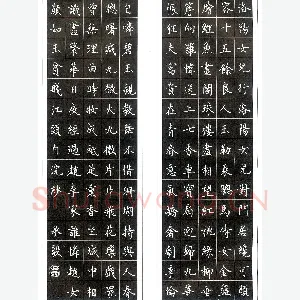 洛陽女兒行洛陽女兒對門居纔可
容顏十五餘良人玉勒乘驄馬侍女金
盤膾鯉魚畫閣朱樓盡相望紅桃綠柳
垂簷向羅幃送上七香車寶扇迎歸九華
帳狂夫富貴在青春意氣驕奢劇季倫
自憐碧玉親教舞不惜珊瑚持與人春
窗曙滅九微火九微片片飛花瑣戲罷
曾無理曲時妝成祗是熏香坐城中相
識盡繁華日夜經過趙李家誰憐越女
顏如玉貧賤江頭自浣紗